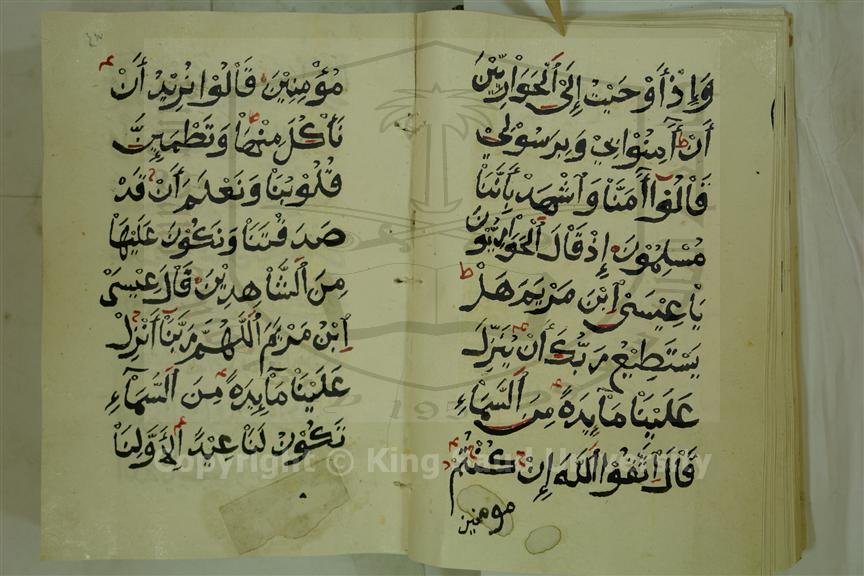 وَإِذْ أَوْحَيْتُ إِلَى الْحَوَارِيِّينَ
أَنْ آمِنُوا بِي وَبِرَسُولِي
قَالُوا آمَنَّا وَاشْهَدْ بِأَنَّنَا
مُسْلِمُونَ إِذْ قَالَ الْحَوَارِيُّونَ
يَا عِيسَى ابْنَ مَرْيَمَ هَلْ
يَسْتَطِيعُ رَبُّكَ أَنْ يُنَزِّلَ
عَلَيْنَا مَآئِدَةً مِنَ السَّمَآءِ
قَالَ اتَّقُوا اللَّهَ إِنْ كُنْتُمْ
مومنين
٤٣
مُؤْمِنِينَ قَالُوا نُرِيدُ أَنْ
نَأْكُلَ مِنْهَا وَتَطْمَئِنَّ
قُلُوبُنَا وَنَعْلَمَ أَنْ قَدْ
صَدَقْتَنَا وَنَكُونَ عَلَيْهَا
مِنَ الشَّاهِدِينَ قَالَ عِيسَى
ابْنُ مَرْيَمَ اللَّهُمَّ رَبَّنَا أَنْزِلْ
عَلَيْنَا مَآئِدَةً مِنَ السَّمَآءِ
تَكُونُ لَنَا عِيدًا لِأَوَّلِنَا
Copyright © King Saud University
1957